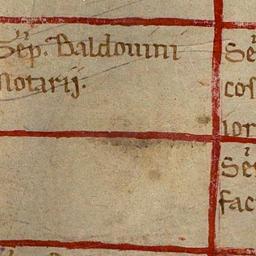 Ser̃p. Baldouini
Notarij.
Se
cos
ior
Se
fac